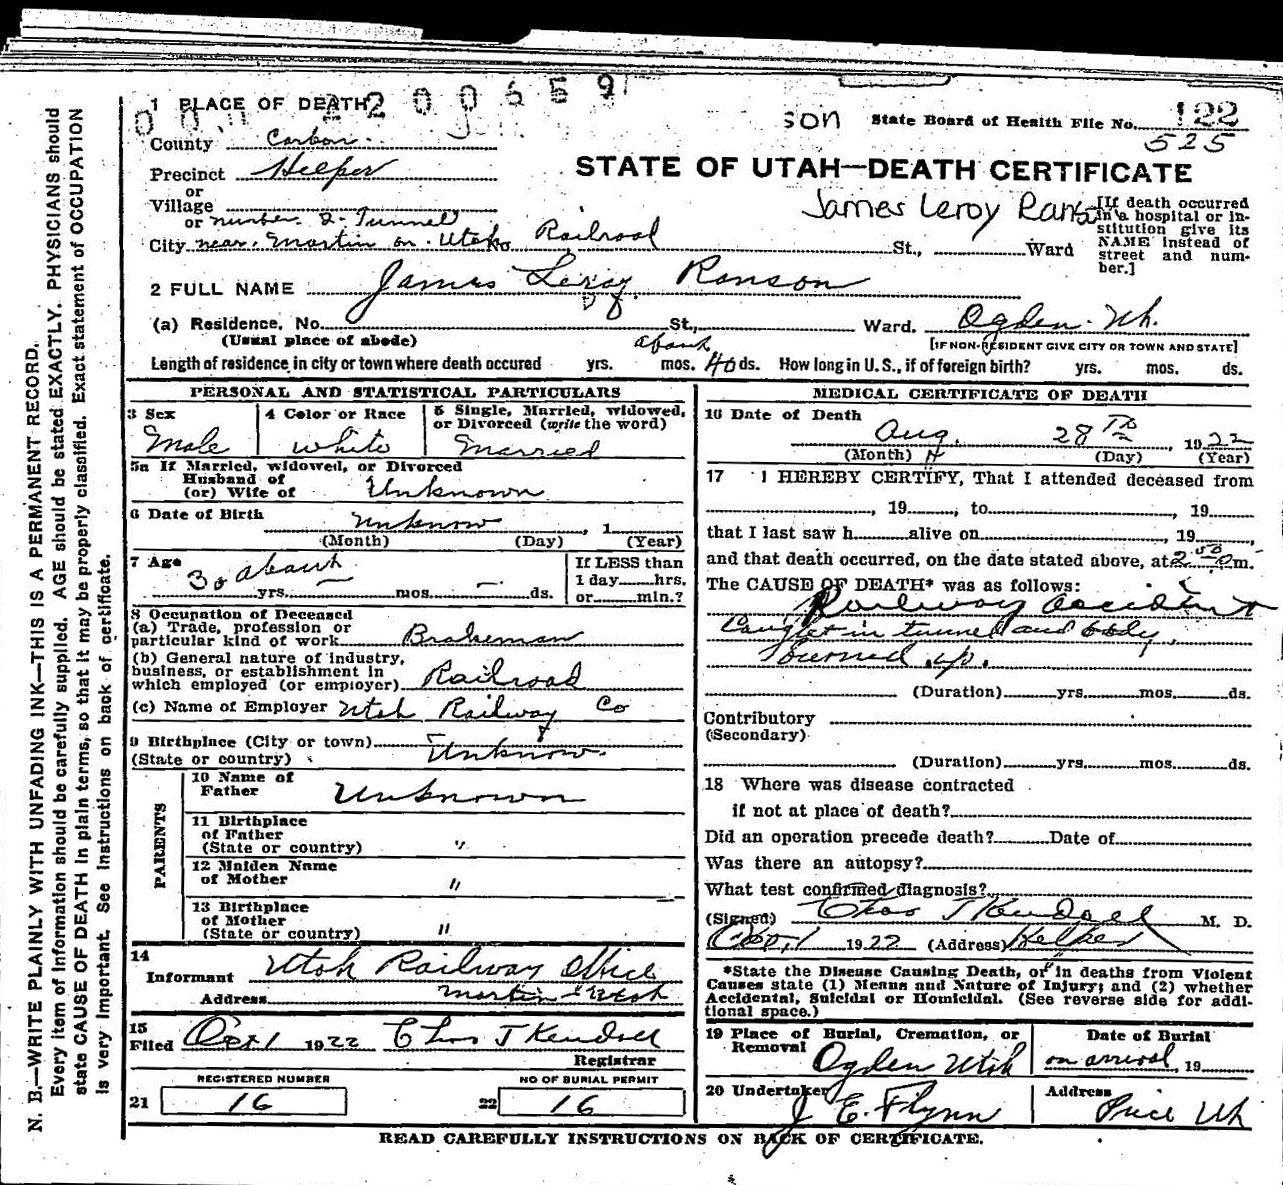 1 PLACE OF DEATH
County Carbon
Precinct Helper
or
Village
or number 2. Tunnell
City near. Martin on. Utah Railroad St., Ward
son
State Board of Health File No. 122
525
STATE OF UTAH—DEATH CERTIFICATE
James Leroy Ranson
[If death occurred
in a hospital or in-
stitution give its
NAME instead of
street and num-
ber.]
2 FULL NAME James Leroy Ranson
(a) Residence, No. St., Ward. Ogden. Uh.
(Usual place of abode) [IF NON-RESIDENT GIVE CITY OR TOWN AND STATE]
about
Length of residence in city or town where death occured yrs. mos. 40 ds. How long in U.S., if of foreign birth? yrs. mos. ds.
PERSONAL AND STATISTICAL PARTICULARS
3 Sex
Male
4 Color or Race
White
5 Single, Married, widowed,
or Divorced (write the word)
Married
5a If Married, widowed, or Divorced
Husband of
(or) Wife of Unknown
6 Date of Birth Unknow , 1
(Month) (Day) (Year)
7 Age
30 about yrs. mos. ds.
If LESS than
1 day hrs.
or min.?
8 Occupation of Deceased
(a) Trade, profession or
particular kind of work Brakeman
(b) General nature of industry,
business, or establishment in
which employed (or employer) Railroad
(c) Name of Employer Utah Railway Co
9 Birthplace (City or town)
(State or country) Unknow.
PARENTS
10 Name of
Father Unknown
11 Birthplace
of Father
(State or country) "
12 Maiden Name
of Mother "
13 Birthplace
of Mother
(State or country) "
14
Informant Utah Railway Office
Address Martin Utah
15
Filed Oct 1 1922 Thos J Kendall
Registrar
REGISTERED NUMBER
21 16
NO OF BURIAL PERMIT
22 16
MEDICAL CERTIFICATE OF DEATH
16 Date of Death
Aug. 28 Th 1922
(Month) (Day) (Year)
17 I HEREBY CERTIFY, That I attended deceased from
, 19 , to , 19
that I last saw h alive on , 19 ,
and that death occurred, on the date stated above, at 2 50 Pm.
The CAUSE OF DEATH* was as follows:
Railway accident
Caught in tunnel and body
burned up.
(Duration) yrs. mos. ds.
Contributory
(Secondary)
(Duration) yrs. mos. ds.
18 Where was disease contracted
if not at place of death?
Did an operation precede death? Date of
Was there an autopsy?
What test confirmed diagnosis?
(Signed) Thos J Kendall M. D.
Oct 1 1922 (Address) Helper
*State the Disease Causing Death, or in deaths from Violent
Causes state (1) Means and Nature of Injury; and (2) whether
Accidental, Suicidal or Homicidal. (See reverse side for addi-
tional space.)
19 Place of Burial, Cremation, or
Removal Ogden Utah
Date of Burial
on arrival , 19
20 Undertaker
J E. Flynn
Address
Price Uh
READ CAREFULLY INSTRUCTIONS ON BACK OF CERTIFICATE.
N. B.—WRITE PLAINLY WITH UNFADING INK—THIS IS A PERMANENT RECORD.
Every item of information should be carefully supplied. AGE should be stated EXACTLY. PHYSICIANS should
state CAUSE OF DEATH in plain terms, so that it may be properly classified. Exact statement of OCCUPATION
is very important. See instructions on back of certificate.